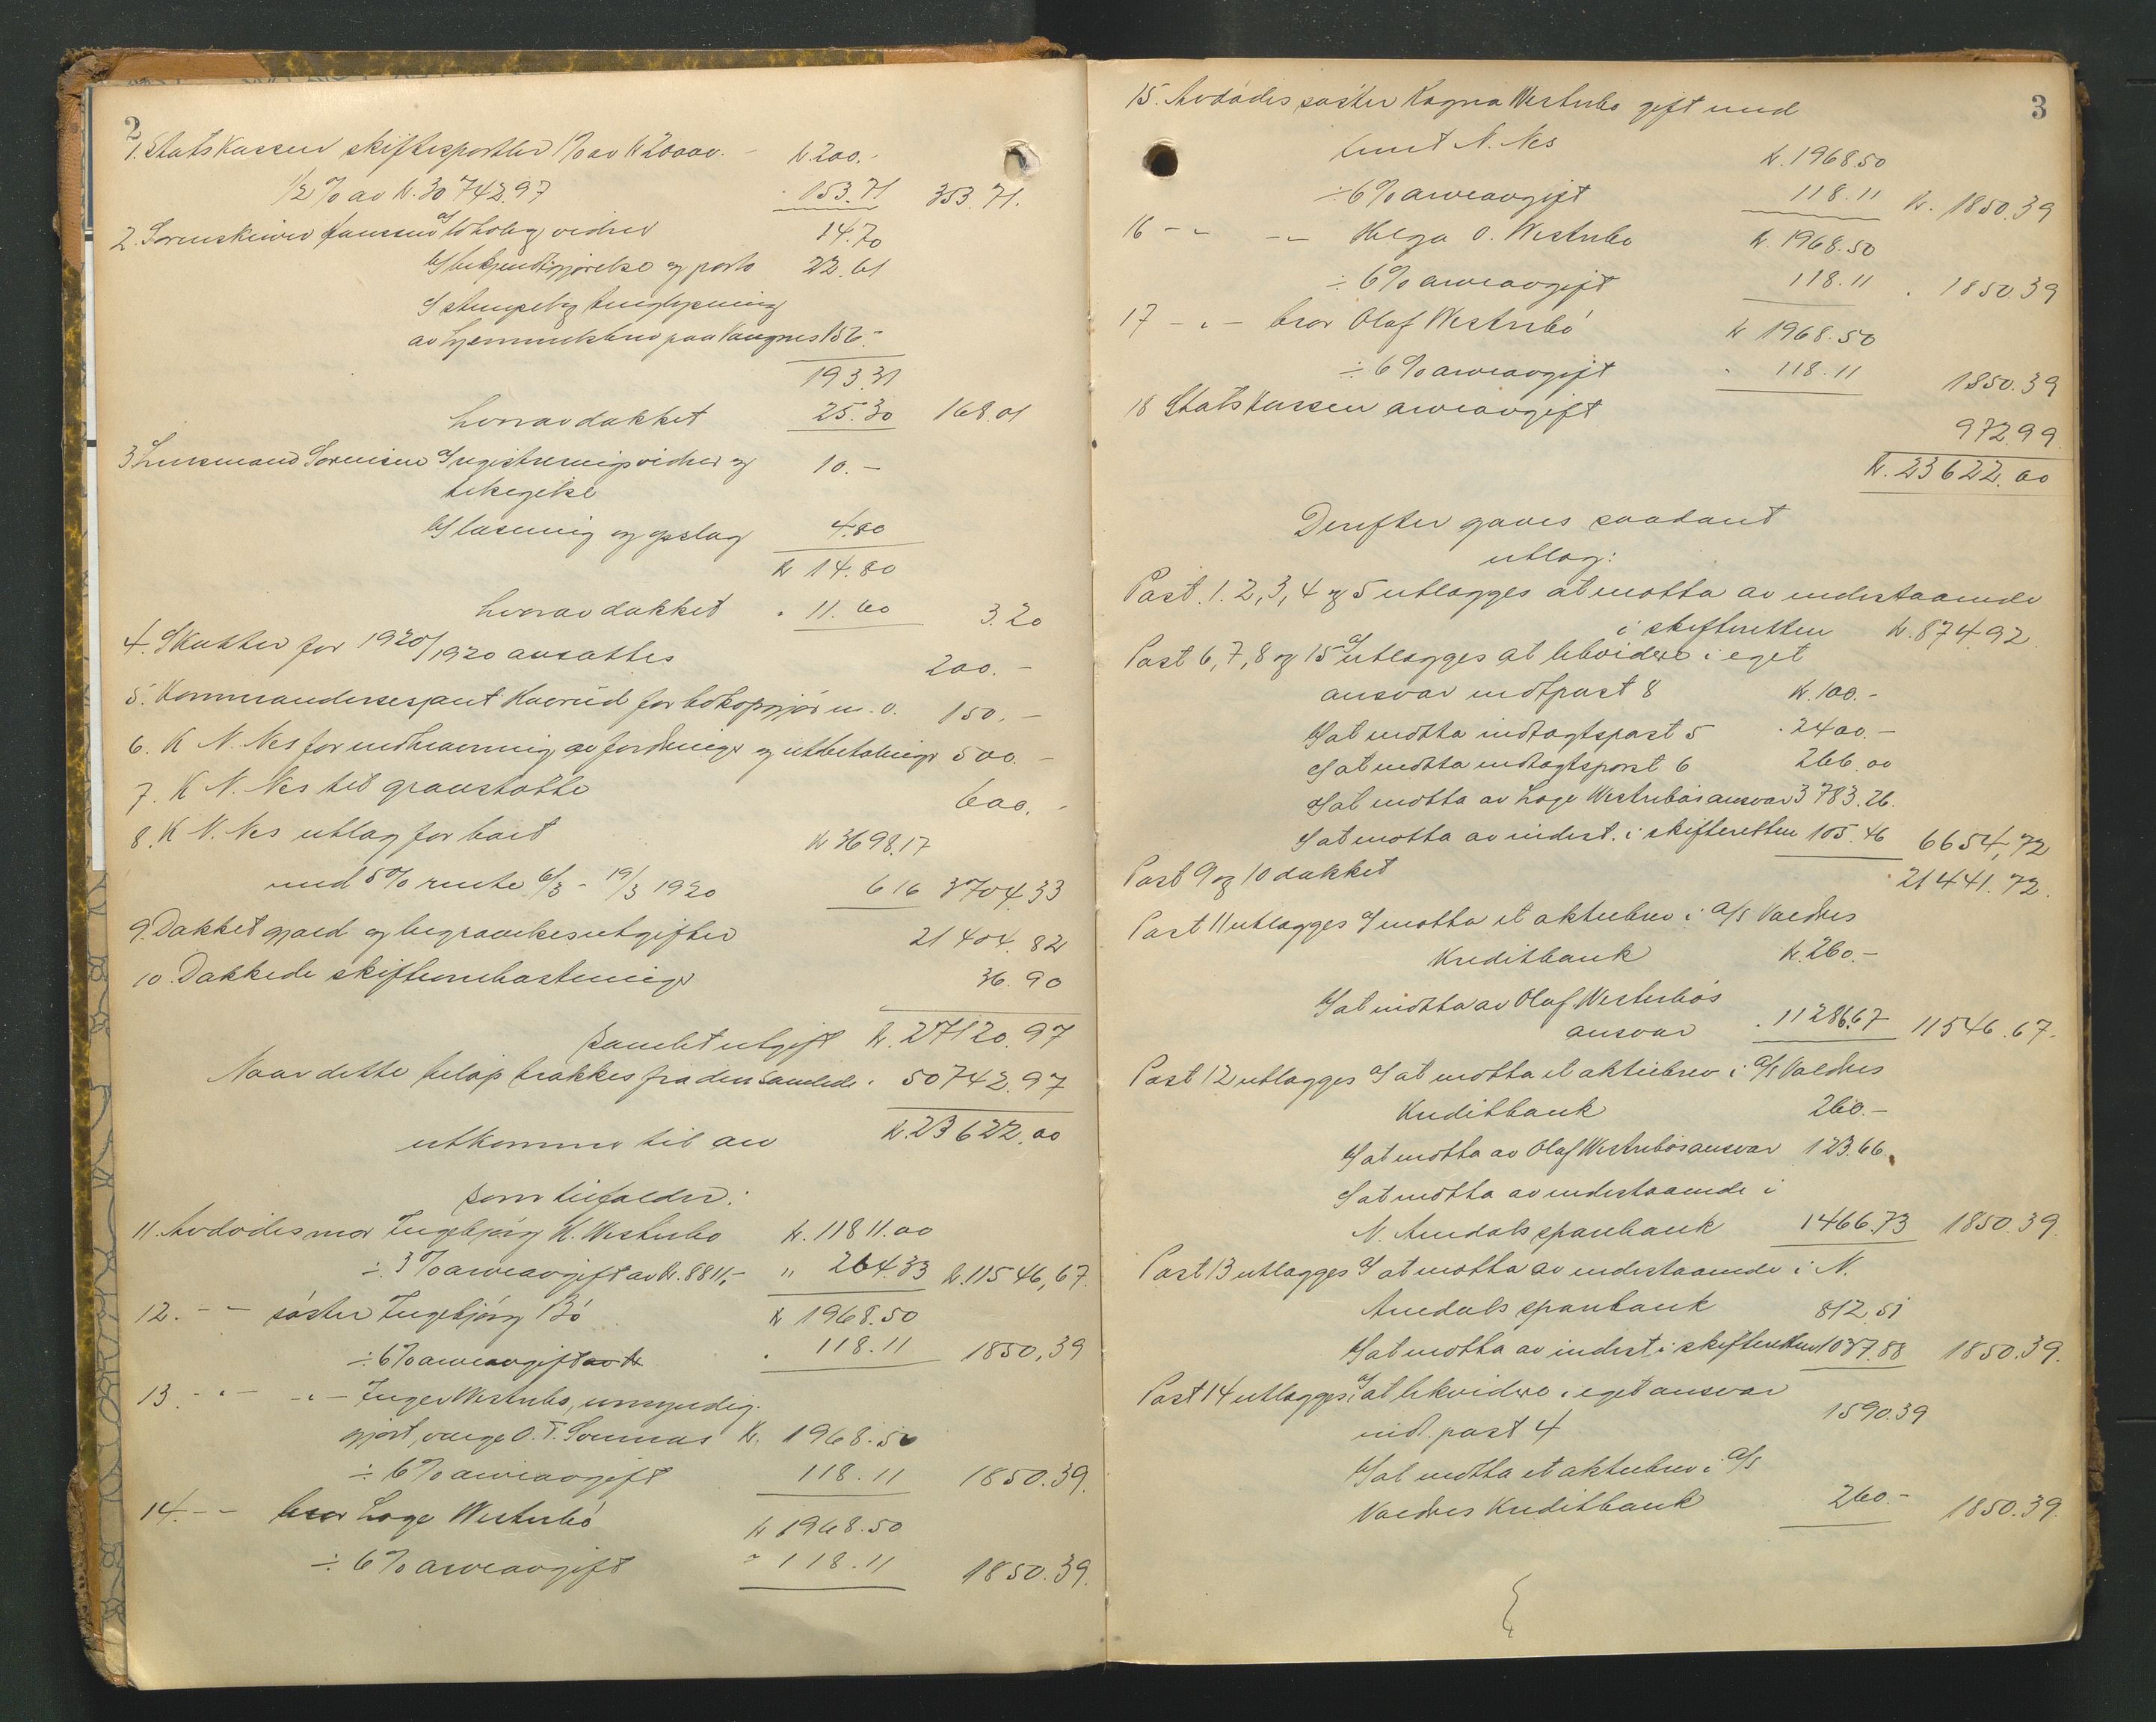 2
1. Statskassen skiftesportler 1% av K 20000.- K. 200.-
1/2 % av K. 30742.97 153.71 353.71.
2. Sorenskriver Janssen a/ tolog vidner 14.70
b/ bekjendtgjørelse og porto 22.61
c/ stempel og tinglysning
av hjemmelsbrev paa Vangnes 156.-
193.31
hvorav dækket 25.30 168.01
3. Lensmand Sørensen a/ registrering vidner og 10.-
b/ læsning og opslag 4.80
K 14.80
hvorav dækket " 11.60 3.20
4. Skatter for 1920/1920 ansættes 200.-
5. Kommandersersjant Haavrud for bokopgjør m. v. 150.-
6. K N. Nes for indkrævning av fordringer og utbetalinger 500.-
7. K N. Nes til gravstøtte 600.-
8. K N. Nes utlæg for boet K 3698.17
med 5% rente 6/3 - 19/3 1920 6 16 3704.33
9. Dækket gjæld og begravelsesutgifter 21404.82
10. Dækkede skifteomkostninger 36.90
Samlet utgift K. 27120.97
Naar dette beløp trækkes fra den samlede . 50742.97
utkommer til arv K. 23622.00
som tilfalder:
11. Avdødes mor Ingebjørg K. Westerbø K. 11811.00
÷ 3% arveavgift av K. 8811,- " 264.33 K. 11546,67.
12. - - søster Ingebjørg Bø K 1968.50
÷ 6% arveavgift av K . 118.11 1850,39
13. - " - - " - Inger Westerbø, umyndig-
gjort, verge O. T. K. 1968.50
÷ 6% arveavgift 118.11 1850.39.
14. - - bror Lage Westerbø K 1968.50
÷ 6% arveavgift " 118.11 1850.39.
3
15. Avdødes søster Ragna Westerbø gift med
Knut N. Nes K. 1968.50
÷ 6% arveavgift 118.11 K. 1850.39
16 - " - - Helga O. Westerbø K. 1968.50
÷ 6% arveavgift 118.11 . 1850.39
17 - " - bror Olaf Westerbø K 1968.50
÷ 6% arveavgift " 118.11 1850.39
18 Statskassen arveavgift 972.99
K. 23622.00
Derefter gaves saadant
utlæg:
Post. 1. 2, 3, 4 og 5 utlægges at motta av indestaaende
i skifteretten K. 874.92
Post 6, 7, 8 og 15 a/ utlægges at likvidere i eget
ansvar indt. post 8 K. 100.-
b/ at motta indtægtspost 5 . 2400.-
c/ at motta indtægtspost 6 266.00
d/ at motta av Lage Westerbøs ansvar 3783.26.
e/ at motta av indest. i skifteretten 105.46 6654,72
Post 9 og 10 dækket " 21441.72.
Post 11 utlægges a/ motta et aktiebrev i A/S Valdres
Kreditbank K. 260.-
b/ at motta av Olaf Westerbøs
ansvar . 11286.67 11546.67.
Post 12 utlægges a/ at motta et aktiebrev i A/S Valdres
Kreditbank 260.-
b/ at motta av Olaf Westerbøs ansvar 123.66.
c/ at motta av indestaaende i
N. Aurdals sparebank 1466.73 1850.39.
Post 13 utlægges a/ at motta av indestaaende i N.
Aurdals sparebank 812.51
b/ at motta av indest. i skifteretten 1037.88 1850.39.
Post 14 utlægges a/ at likvidere i eget ansvar
ind. post 4 1590.39
b/ at motta et aktiebrev i A/S
Valdres Kreditbank 260.- 1850.39.